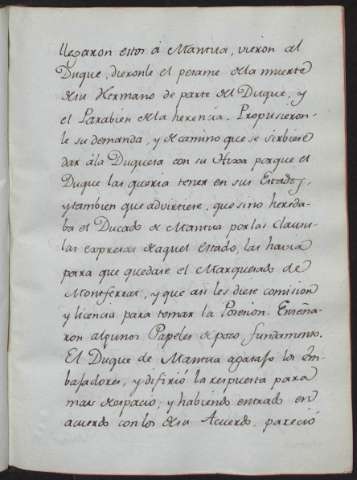 llegaron estos á Mantua, vieron al
Duque, dieronle el pesame de la muerte
de su Hermano de parte del Duque, y
el Parabien de la herencia. Propusieron-
le su demanda, y de camino que se sirbiese
dar á la Duquesa con su Hixa porque el
Duque las queria tener en sus Estados,
y tambien que advirtiese, que sino hereda-
ba el Ducado de Mantua por las Clausu-
las expresas de aquel Estado, las havia
para que quedase el Marquesado de
Monferrat, y que asi les diese comision
y licencia para tomar la Posesion. Enseña-
ron algunos Papeles de poco fundamento.
El Duque de Mantua agasajo los em-
bajadores, y difirió la respuesta para
mas despacio; y habiendo entrado en
acuerdo con los de su Acuerdo, pareció